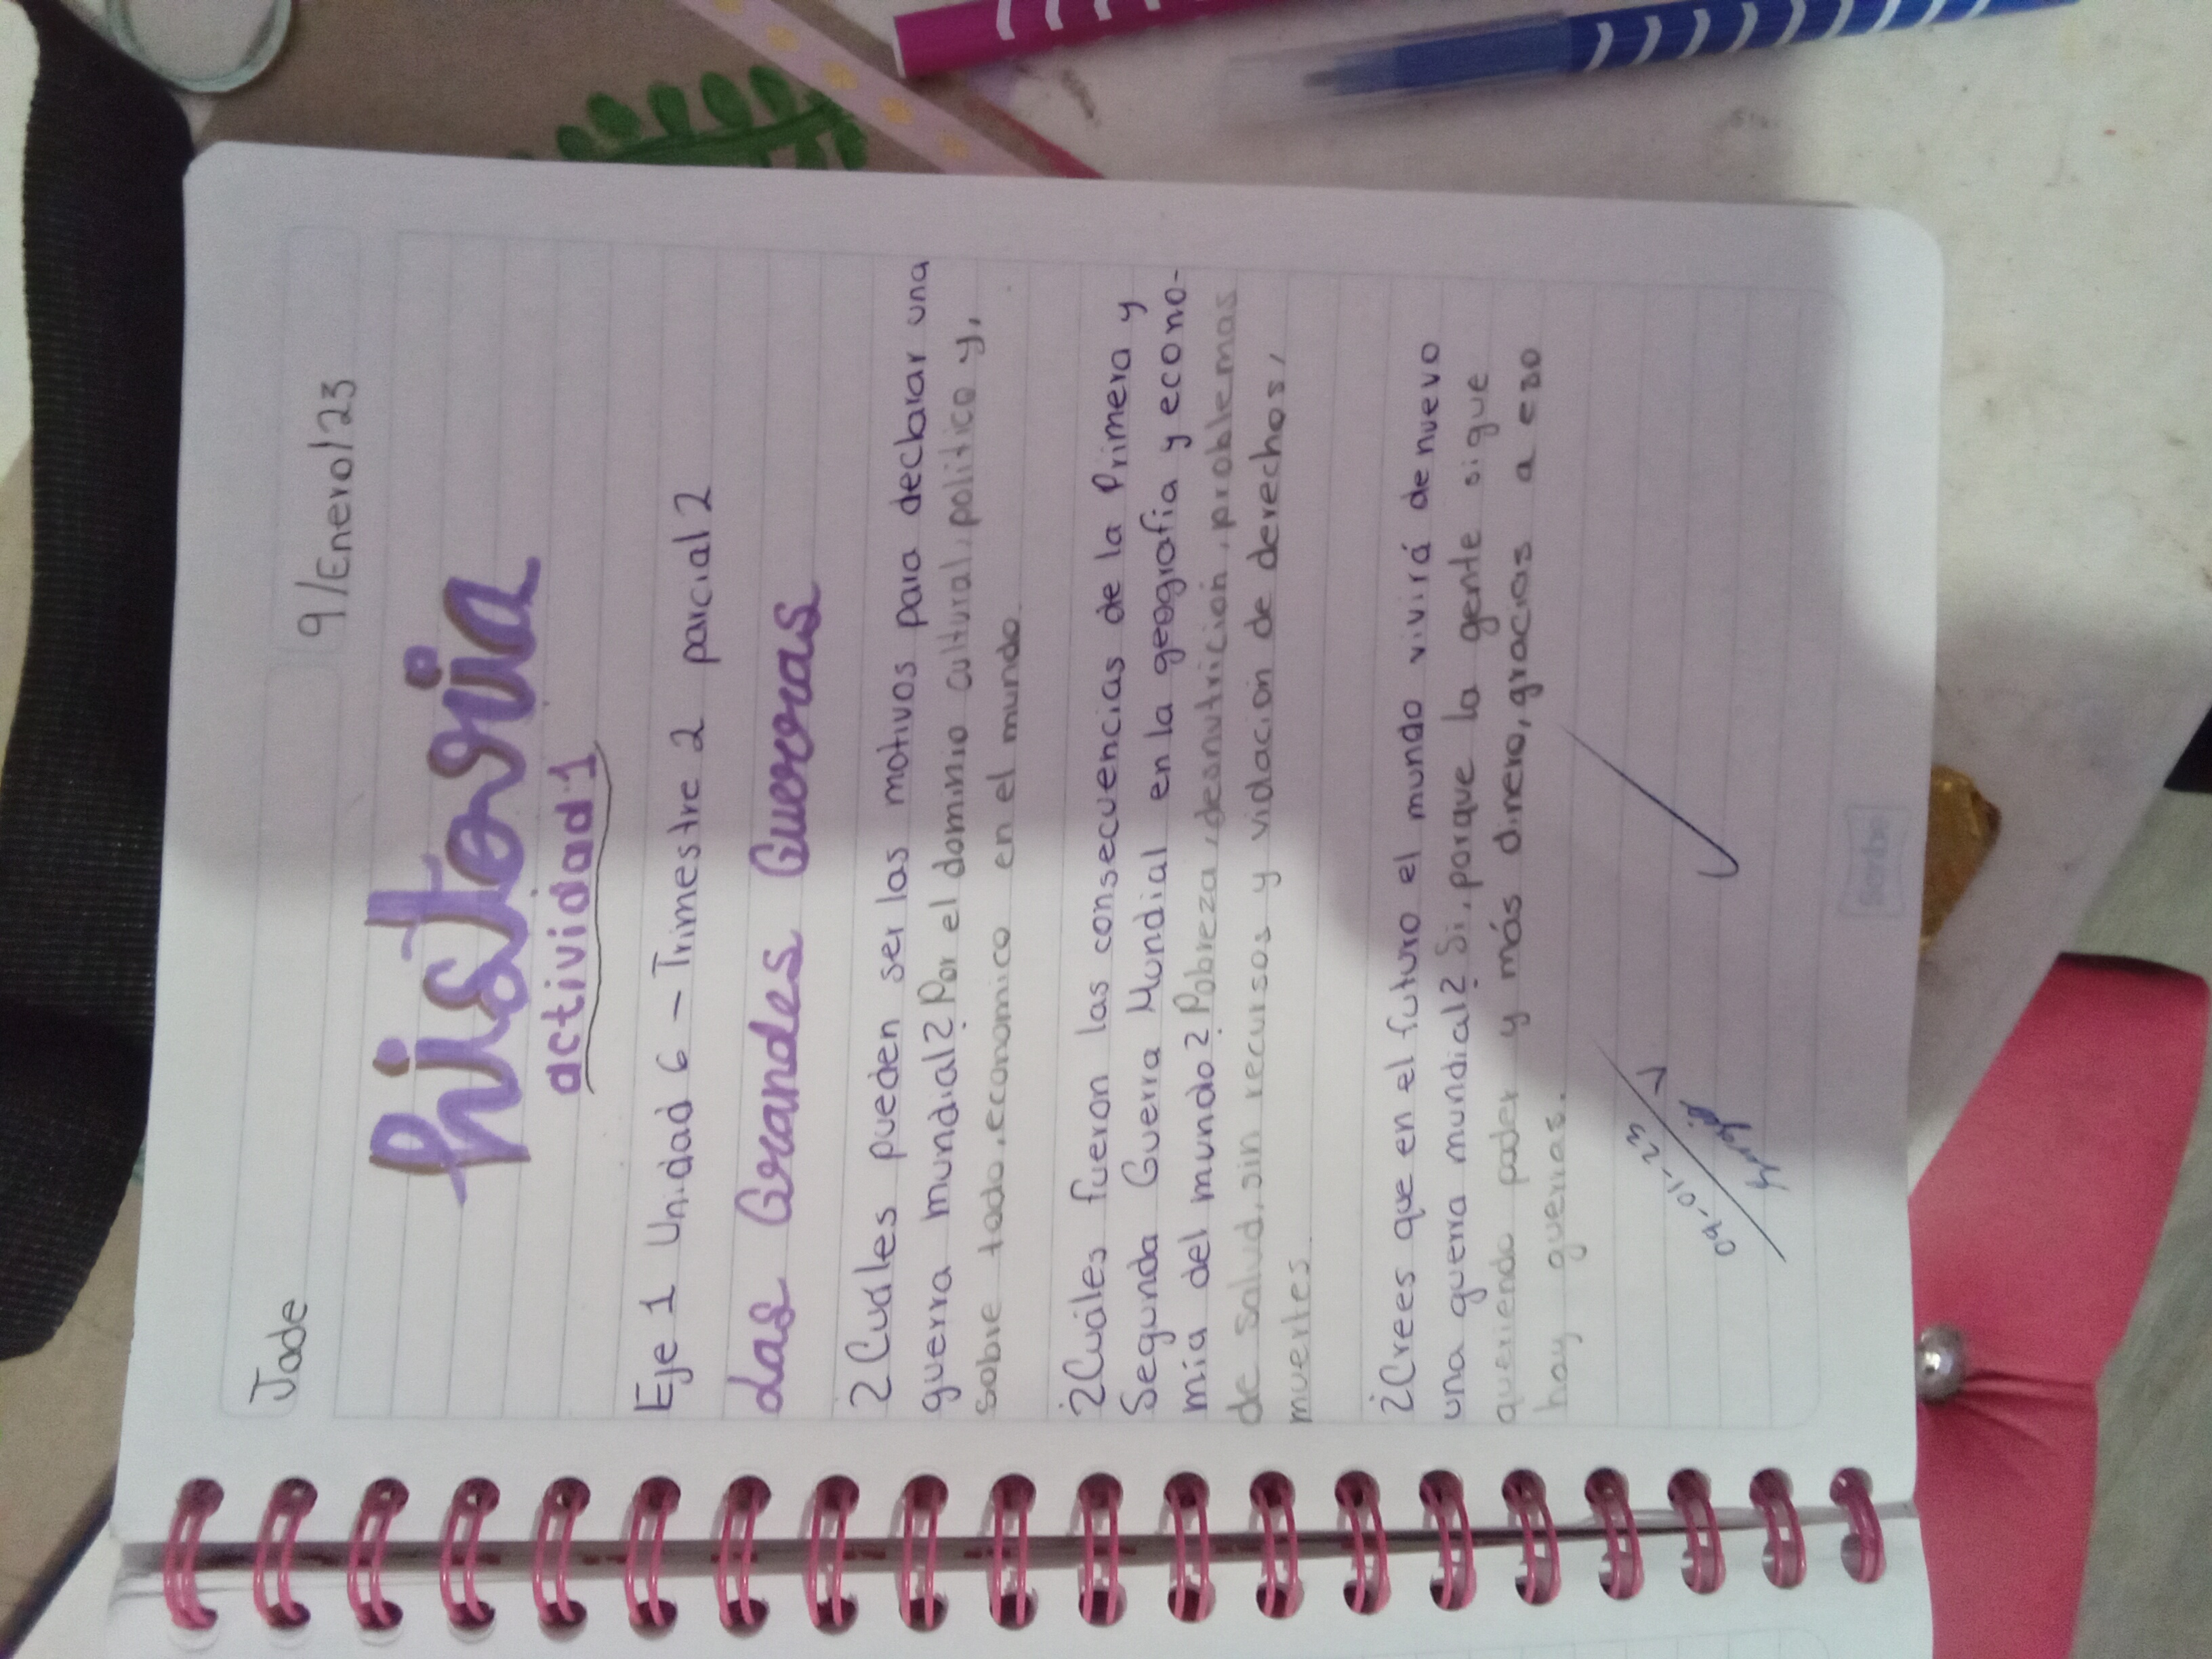 Jade
9/Enero/23
historia
actividad 1
Eje 1 Unidad 6 - Trimestre 2 parcial 2
Las Grandes Guerras
¿Cuáles pueden ser las motivos para declarar una
guerra mundial? Por el dominio cultural, politico y,
sobre todo, economico en el mundo.
¿Cuáles fueron las consecuencias de la Primera y
Segunda Guerra Mundial en la geografía y econo-
mía del mundo? Pobreza, desnutricion, problemas
de salud, sin recursos y violacion de derechos,
muertes.
¿Crees que en el futuro el mundo vivirá de nuevo
una guerra mundial? Si, porque la gente sigue
queriendo poder y más dinero, gracias a eso
hay guerras.
09-01-23
Scribe